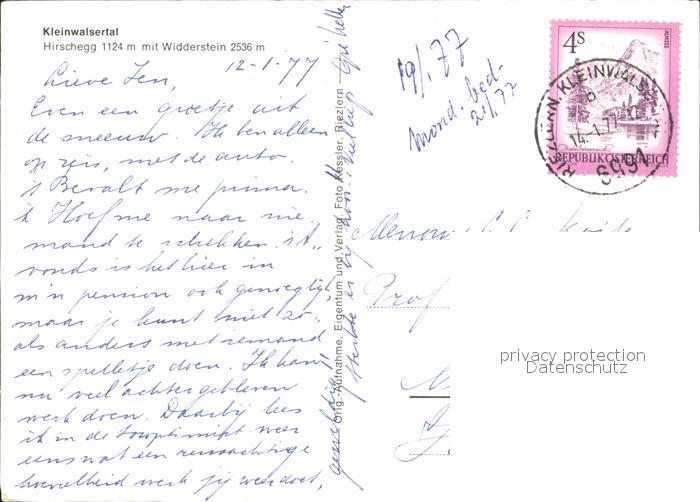 Kleinwalsertal
Hirschegg 1124 m mit Widderstein 2536 m
12-1-77
Lieve Jen,
Even een groetje uit
de sneeuw. Ik ben alleen
op reis, met de auto.
't Bevalt me prima.
Ik Hoef me naar nie-
mand te schikken. 's A-
vonds is het hier in
m'n pension ook genoeglijk,
maar je kunt niet zo-
als anders met iemand
een spelletje doen. Ik kan
nu veel achtergebleven
werk doen. Daarbij lees
ik in de
eens wat een reusachtige
hoeveelheid werk jij weer doet,
Orig.-Aufnahme, Eigentum und Verlag Foto Kessler, Riezlern
19/1.77
mond. bed.
21/1 77
4S
ALMSEE
REPUBLIK ÖSTERREICH
RIEZLERN, KLEINWALS
14.-1.77
6991
Mevrouw
Prof
privacy protection
Datenschutz